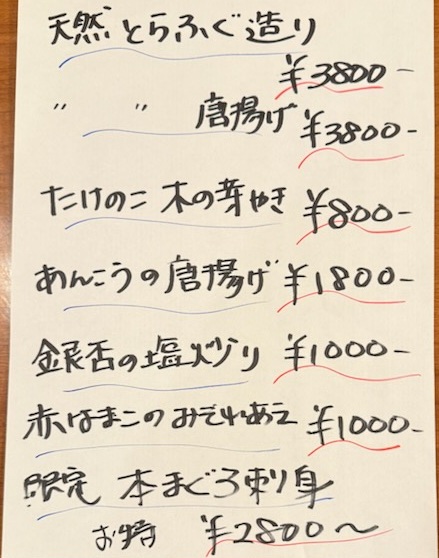 天然 とらふぐ造り
¥3800-
〃 〃 唐揚げ ¥3800-
たけのこ 木の芽やき ¥800-
あんこうの唐揚げ ¥1800-
銀杏の塩炒り ¥1000-
赤なまこのみぞれあえ ¥1000-
限定 本まぐろ刺り身
お特 ¥2800〜